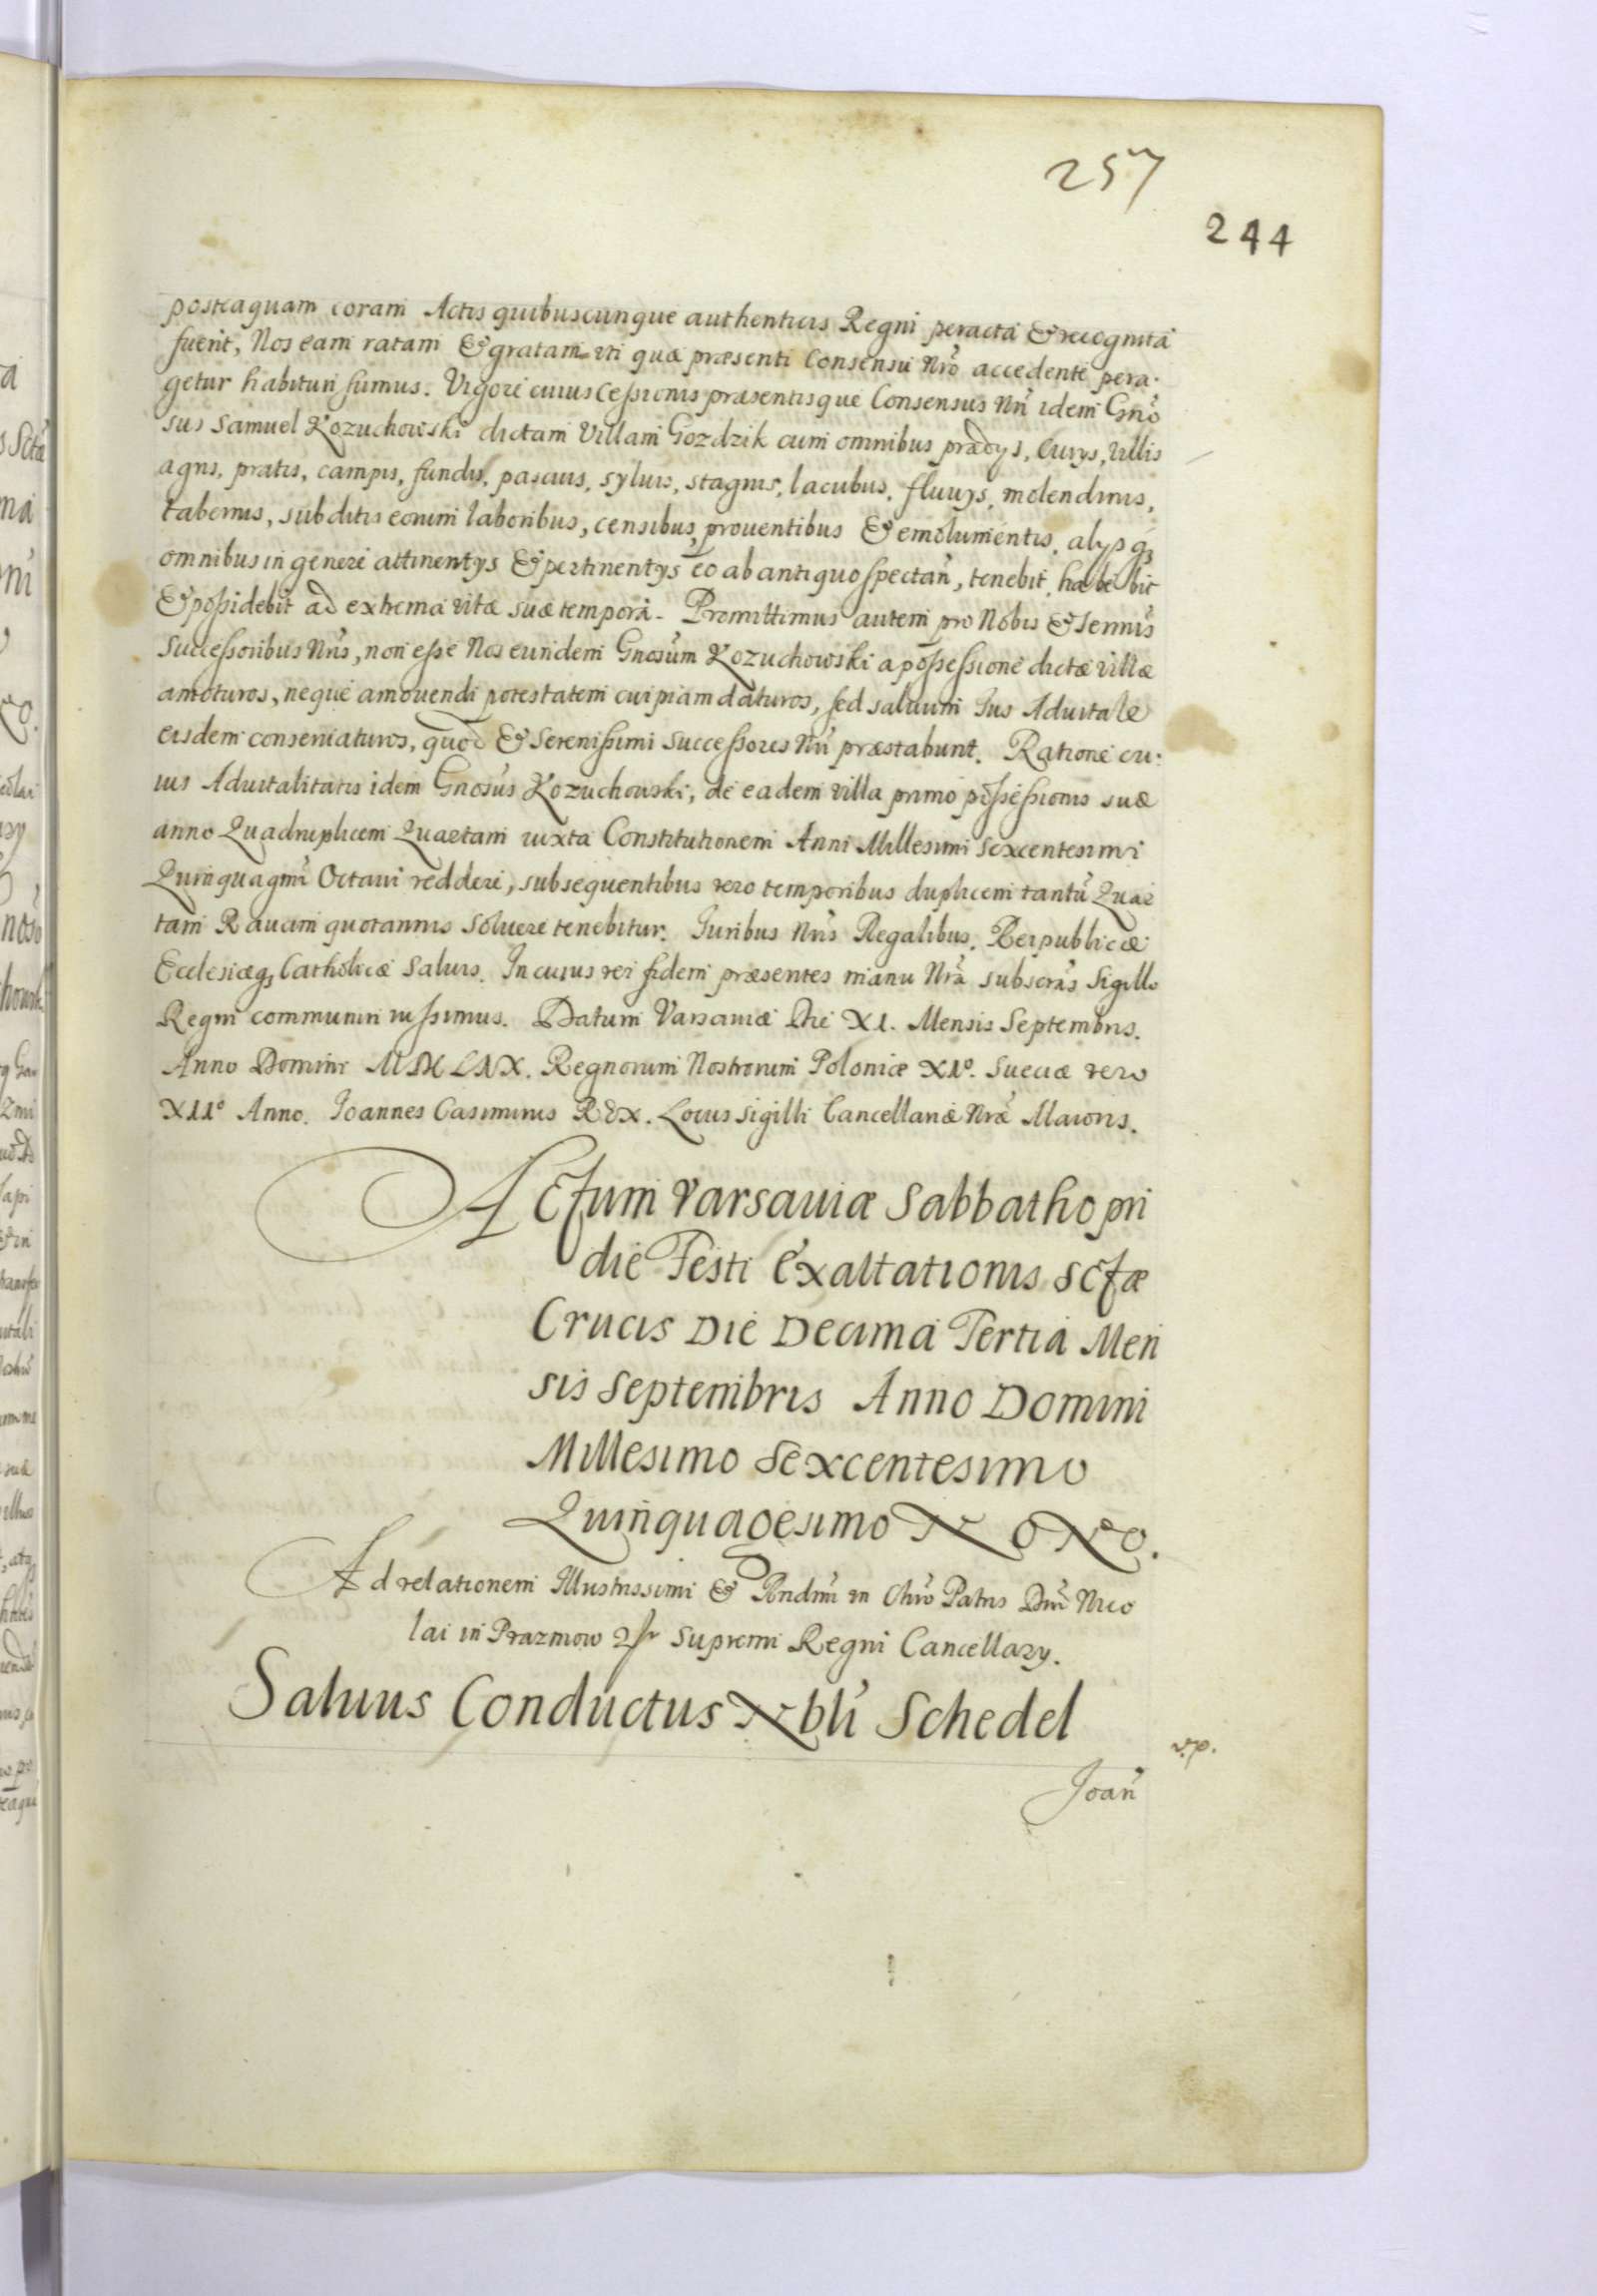 257
244
posteaquam coram Actis quibuscunque authenticis Regni peracta & recognita
fuerit, Nos eam ratam & gratam uti quæ præsenti Consensu Nrõ accedente pera-
getur habituri sumus. Vigore cuius Cessionis præsentisque Consensus Nrĩ idem Gnõ
sus Samuel Kozuchowski dictam Villam Gozdzik cum omnibus prædys, Curys, villis
agris, pratis, campis, fundis, pascuis, syluis, stagnis, lacubus, fluuys, molendinis,
tabernis, subditis eorum laboribus, censibus, prouentibus & emolumentis, alysq3
omnibus in genere attinentys & pertinentys eo ab antiquo spectañ, tenebit, habebit
& possidebit ad extrema vitæ suæ tempora. Promittimus autem pro Nobis & Sermĩs
Successoribus Nrĩs, non esse Nos eundem Gnosũm Kozuchowski a possessione dictæ villæ
amoturos, neque amouendi potestatem cuipiam daturos, sed saluum Ius Aduitale
eisdem conseruaturos, quod & Serenissimi Successores Nrĩ præstabunt. Ratione cu-
ius Aduitalitatis idem Gnosũs Kozuchowski, de eadem villa primo possessionis suæ
anno Quadruplicem Quartam iuxta Constitutionem Anni Millesimi Sexcentesimi
Quinquagmĩ Octaui reddere, subsequentibus vero temporibus duplicem tantũ Quar
tam Rauam quotannis soluere tenebitur. Iuribus Nrĩs Regalibus, Reipublicæ
Ecclesiæq3 Catholicæ saluis. In cuius rei fidem præsentes manu Nrã subscrãs Sigillo
Regni communiri iussimus. Datum Varsauiæ Die XI. Mensis Septembris.
Anno Domini MDCLIX. Regnorum Nostrorum Poloniæ XIº. Sueciæ vero
XIIº Anno. Ioannes Casimirus REX. Locus Sigilli Cancellariæ Nræ Maioris.
Actum Varsauiæ Sabbatho pri
die Festi Exaltationis Sctæ
Crucis Die Decima Tertia Men
sis Septembris Anno Domini
Millesimo Sexcentesimo
Quinquagesimo Nono.
Ad relationem Illustrissimi & Rndmĩ in Chrõ Patris Dnĩ Nico
lai in Prazmow Supremi Regni Cancellary.
Saluus Conductus Nblĩ Schedel
Joañ